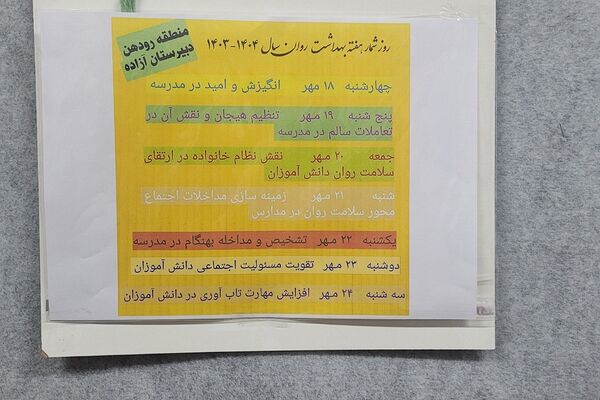 منطقه رودهن
دبیرستان آزاده
روز شمار هفته بهداشت روان سال ۱۴۰۴-۱۴۰۳
چهارشنبه ۱۸ مهر انگیزش و امید در مدرسه
پنج شنبه ۱۹ مهر تنظیم هیجان و نقش آن در
تعاملات سالم در مدرسه
جمعه ۲۰ مهر نقش نظام خانواده در ارتقای
سلامت روان دانش آموزان
شنبه ۲۱ مهر زمینه سازی مداخلات اجتماع
محور سلامت روان در مدارس
یکشنبه ۲۲ مهر تشخیص و مداخله بهنگام در مدرسه
دوشنبه ۲۳ مهر تقویت مسئولیت اجتماعی دانش آموزان
سه شنبه ۲۴ مهر افزایش مهارت تاب آوری در دانش آموزان